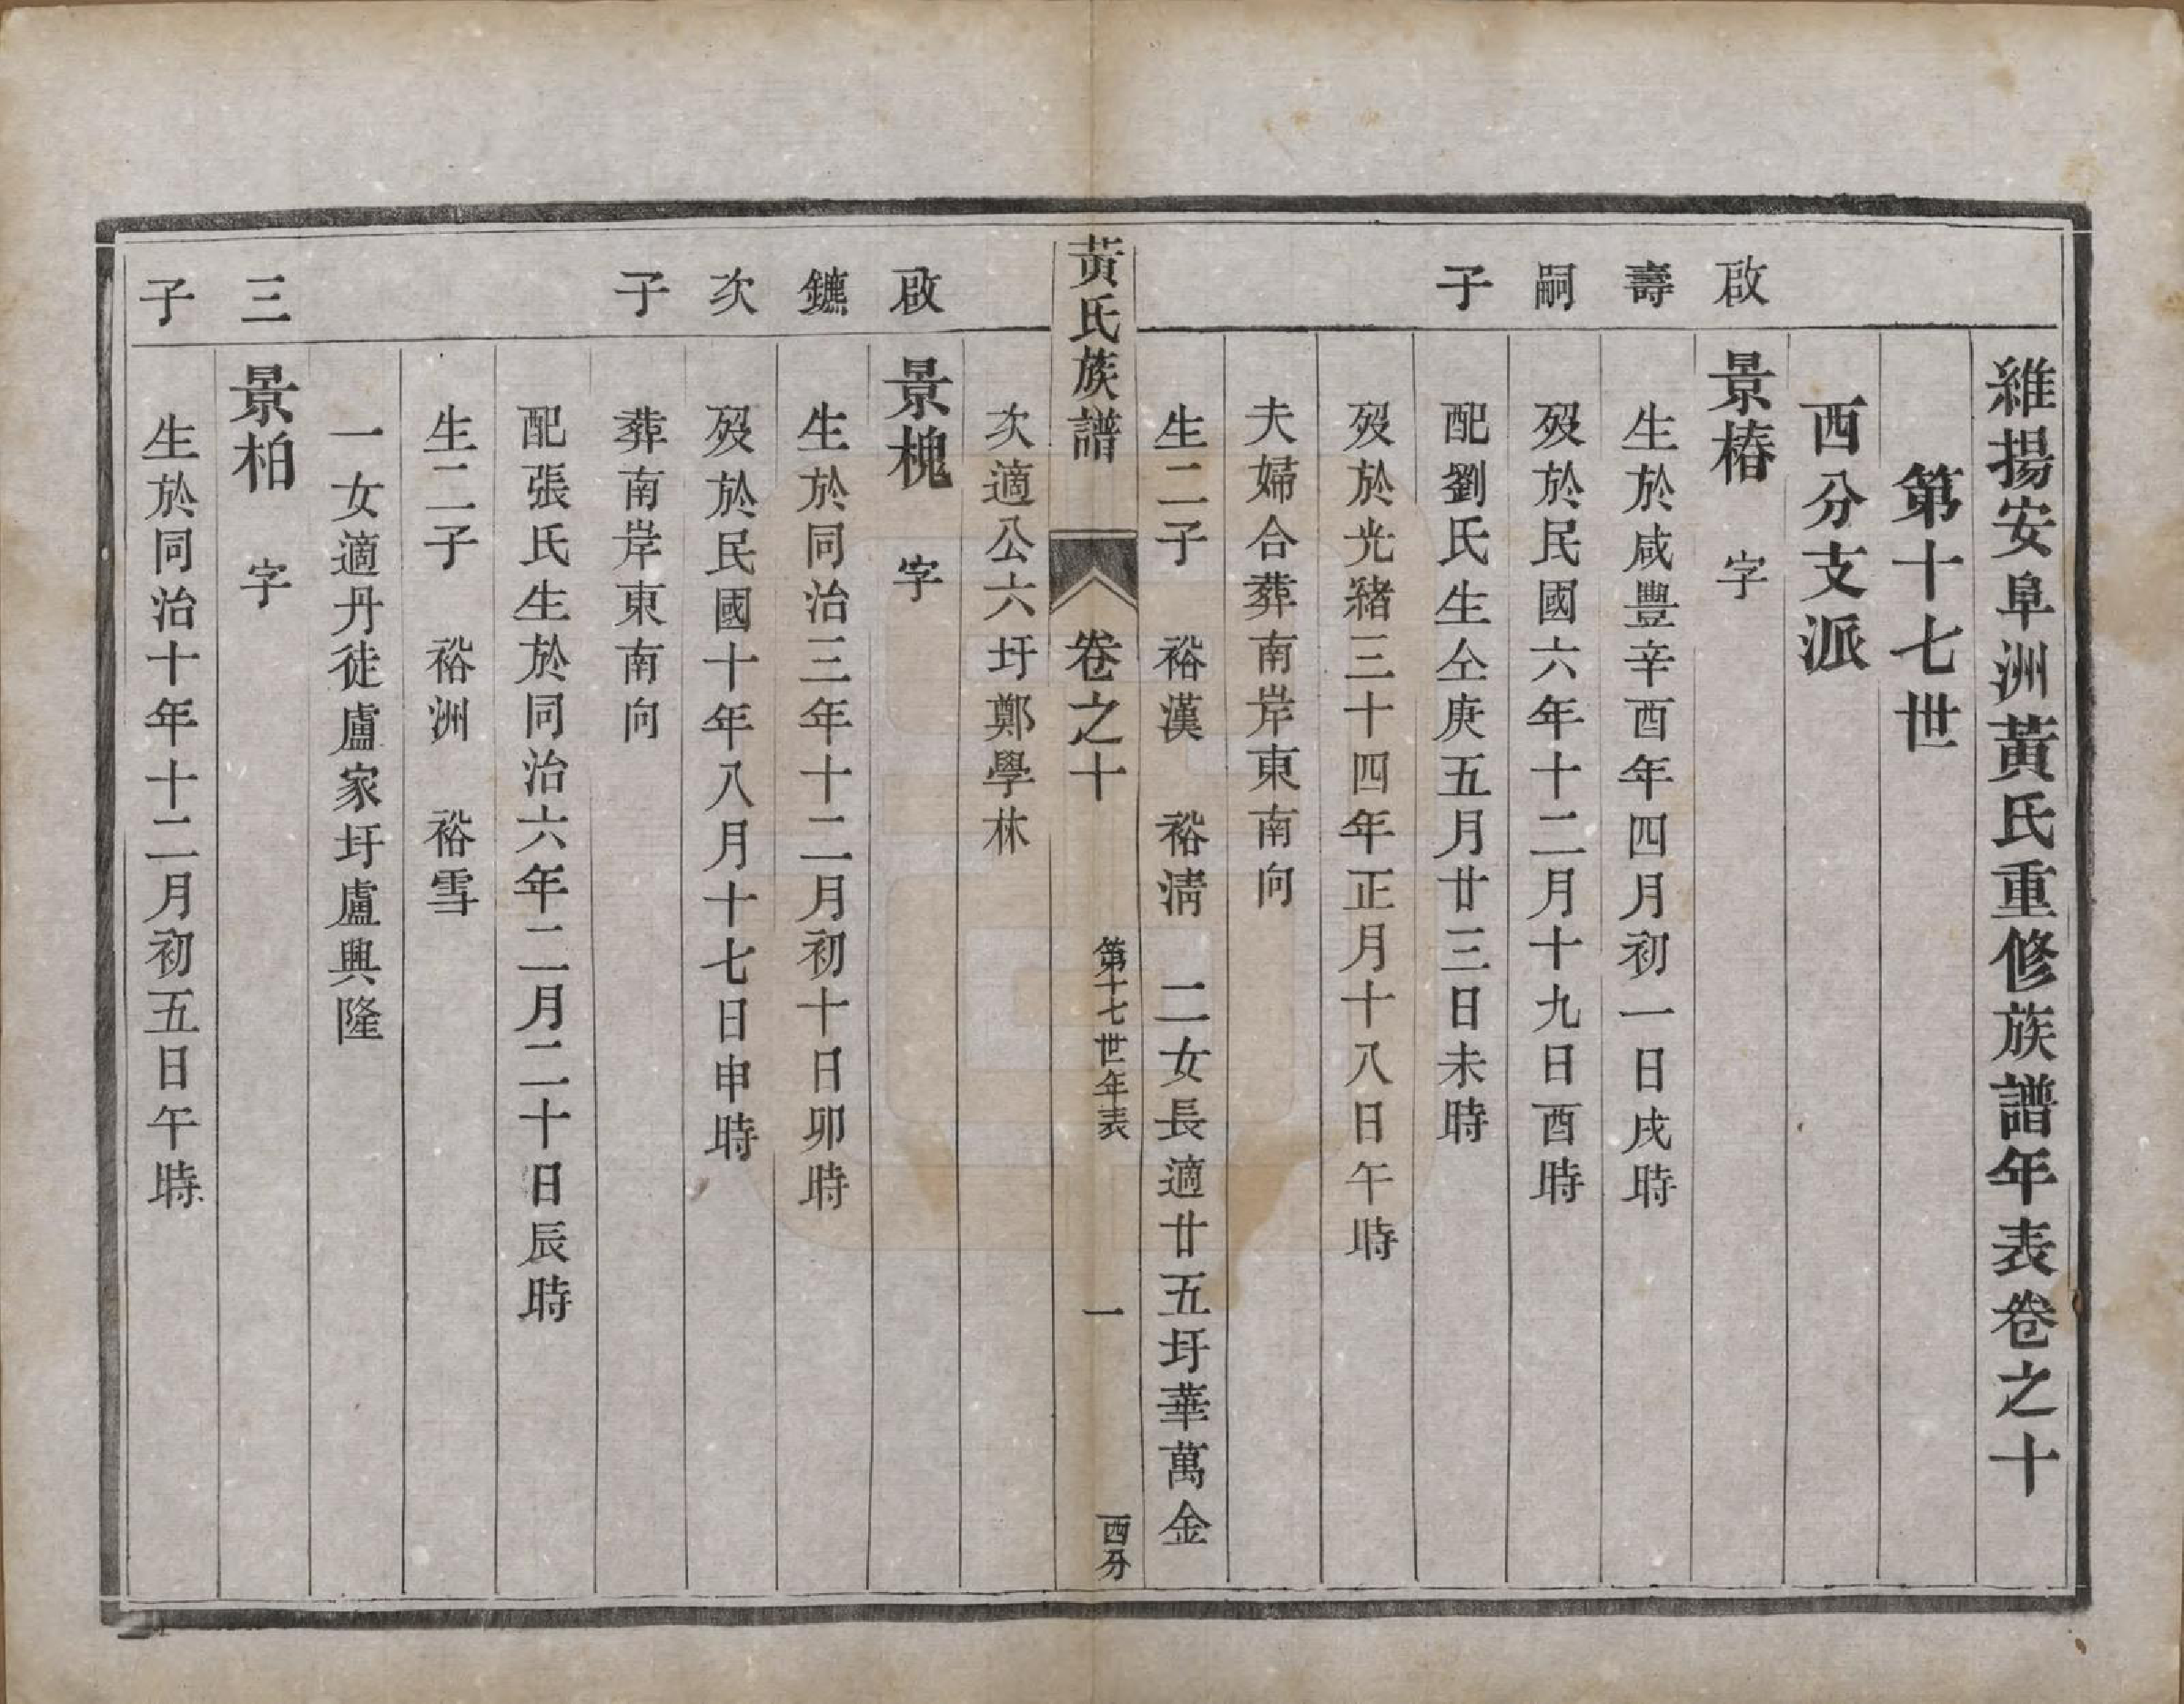 維揚安阜洲黃氏重修族譜年表卷之十
第十七世
西分支派
啟壽嗣子
景椿　字
生於咸豐辛酉年四月初一日戌時
歿於民國六年十二月十九日酉時
配劉氏生仝庚五月廿三日未時
歿於光緒三十四年正月十八日午時
夫婦合葬南岸東南向
生二子　裕漢　裕淸　二女長適廿五圩華萬金
黃氏族譜　卷之十　第十七世年表　一　西分
次適公六圩鄭學林
啟鑣次子
景槐　字
生於同治三年十二月初十日卯時
歿於民國十年八月十七日申時
葬南岸東南向
配張氏生於同治六年二月二十日辰時
生二子　裕洲　裕雪
一女適丹徒盧家圩盧興隆
三子
景柏　字
生於同治十年十二月初五日午時